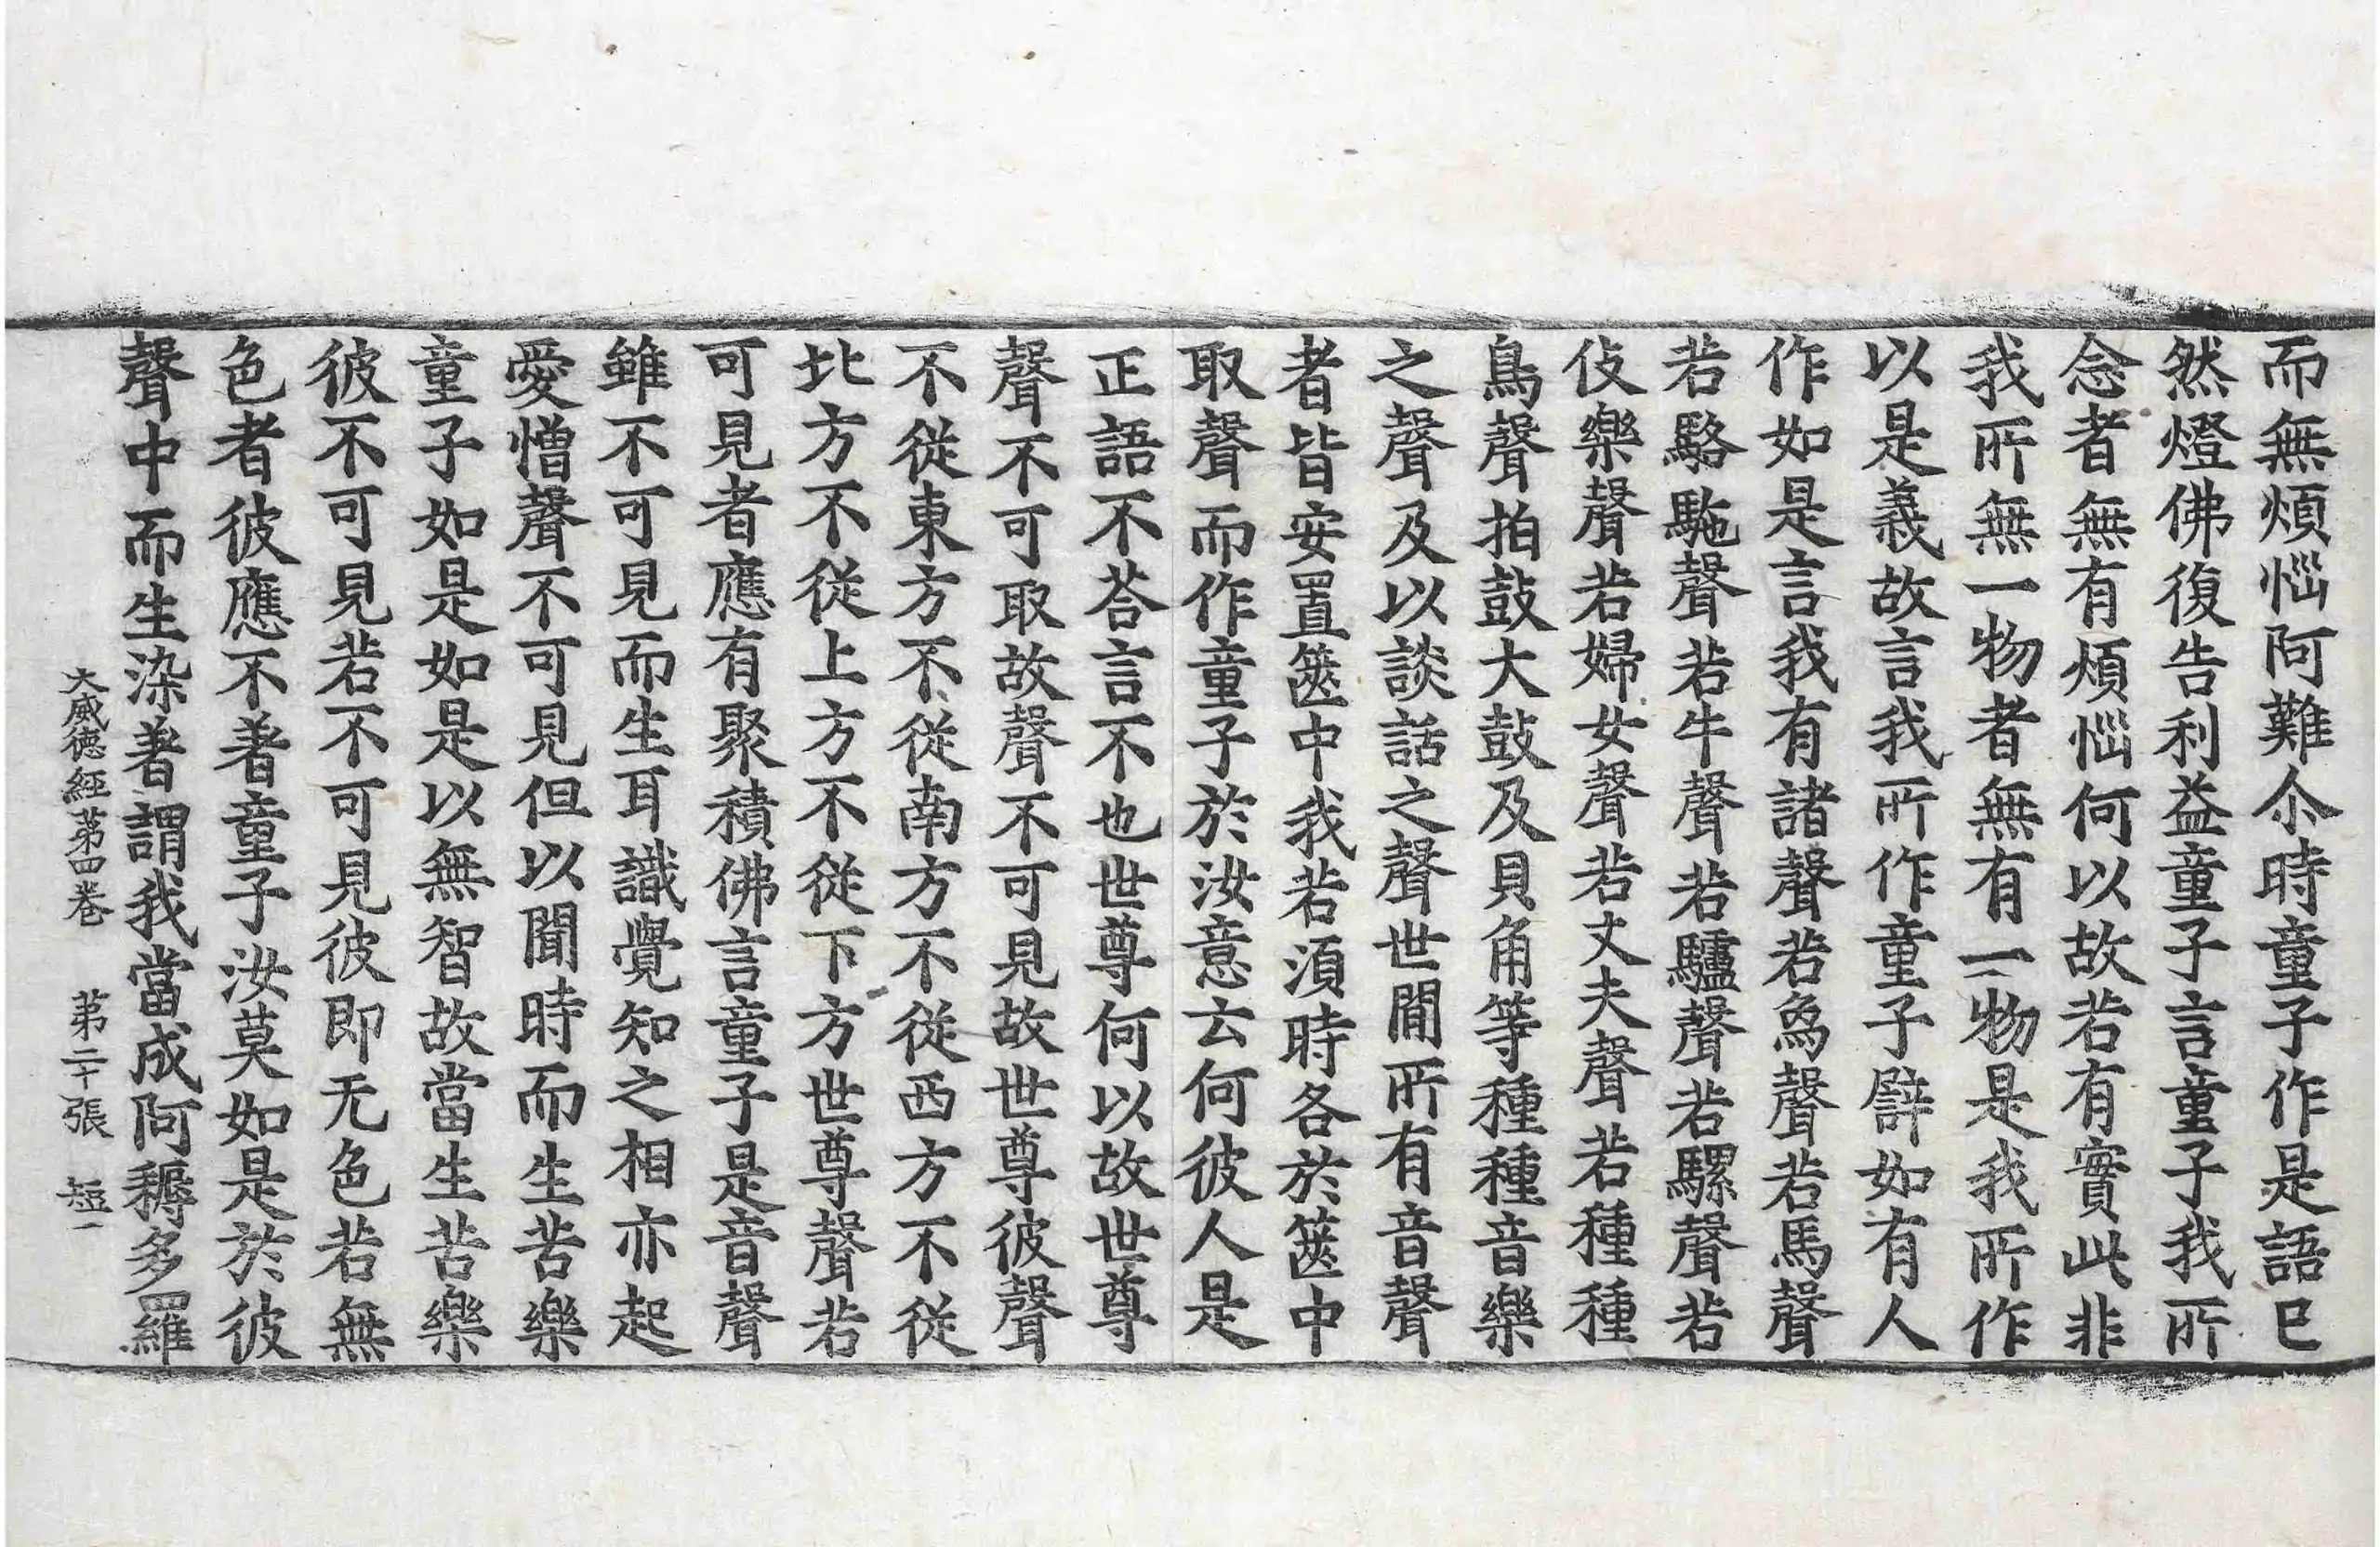 而無煩惱阿難尒時童子作是語已
然燈佛復告利益童子言童子我所
念者無有煩惱何以故若有實此非
我所無一物者無有一物是我所作
以是義故言我所作童子譬如有人
作如是言我有諸聲若象聲若馬聲
若駱駞聲若牛聲若驢聲若騾聲若
伎樂聲若婦女聲若丈夫聲若種種
鳥聲拍鼓大鼓及貝角等種種音樂
之聲及以談話之聲世間所有音聲
者皆安置篋中我若須時各於篋中
取聲而作童子於汝意云何彼人是
正語不荅言不也世尊何以故世尊
聲不可取故聲不可見故世尊彼聲
不從東方不從南方不從西方不從
北方不從上方不從下方世尊聲若
可見者應有聚積佛言童子是音聲
雖不可見而生耳識覺知之相亦起
愛憎聲不可見但以聞時而生苦樂
童子如是如是以無智故當生苦樂
彼不可見若不可見彼即无色若無
色者彼應不著童子汝莫如是於彼
聲中而生染著謂我當成阿耨多羅
大威徳經第四卷 第二十張 短一